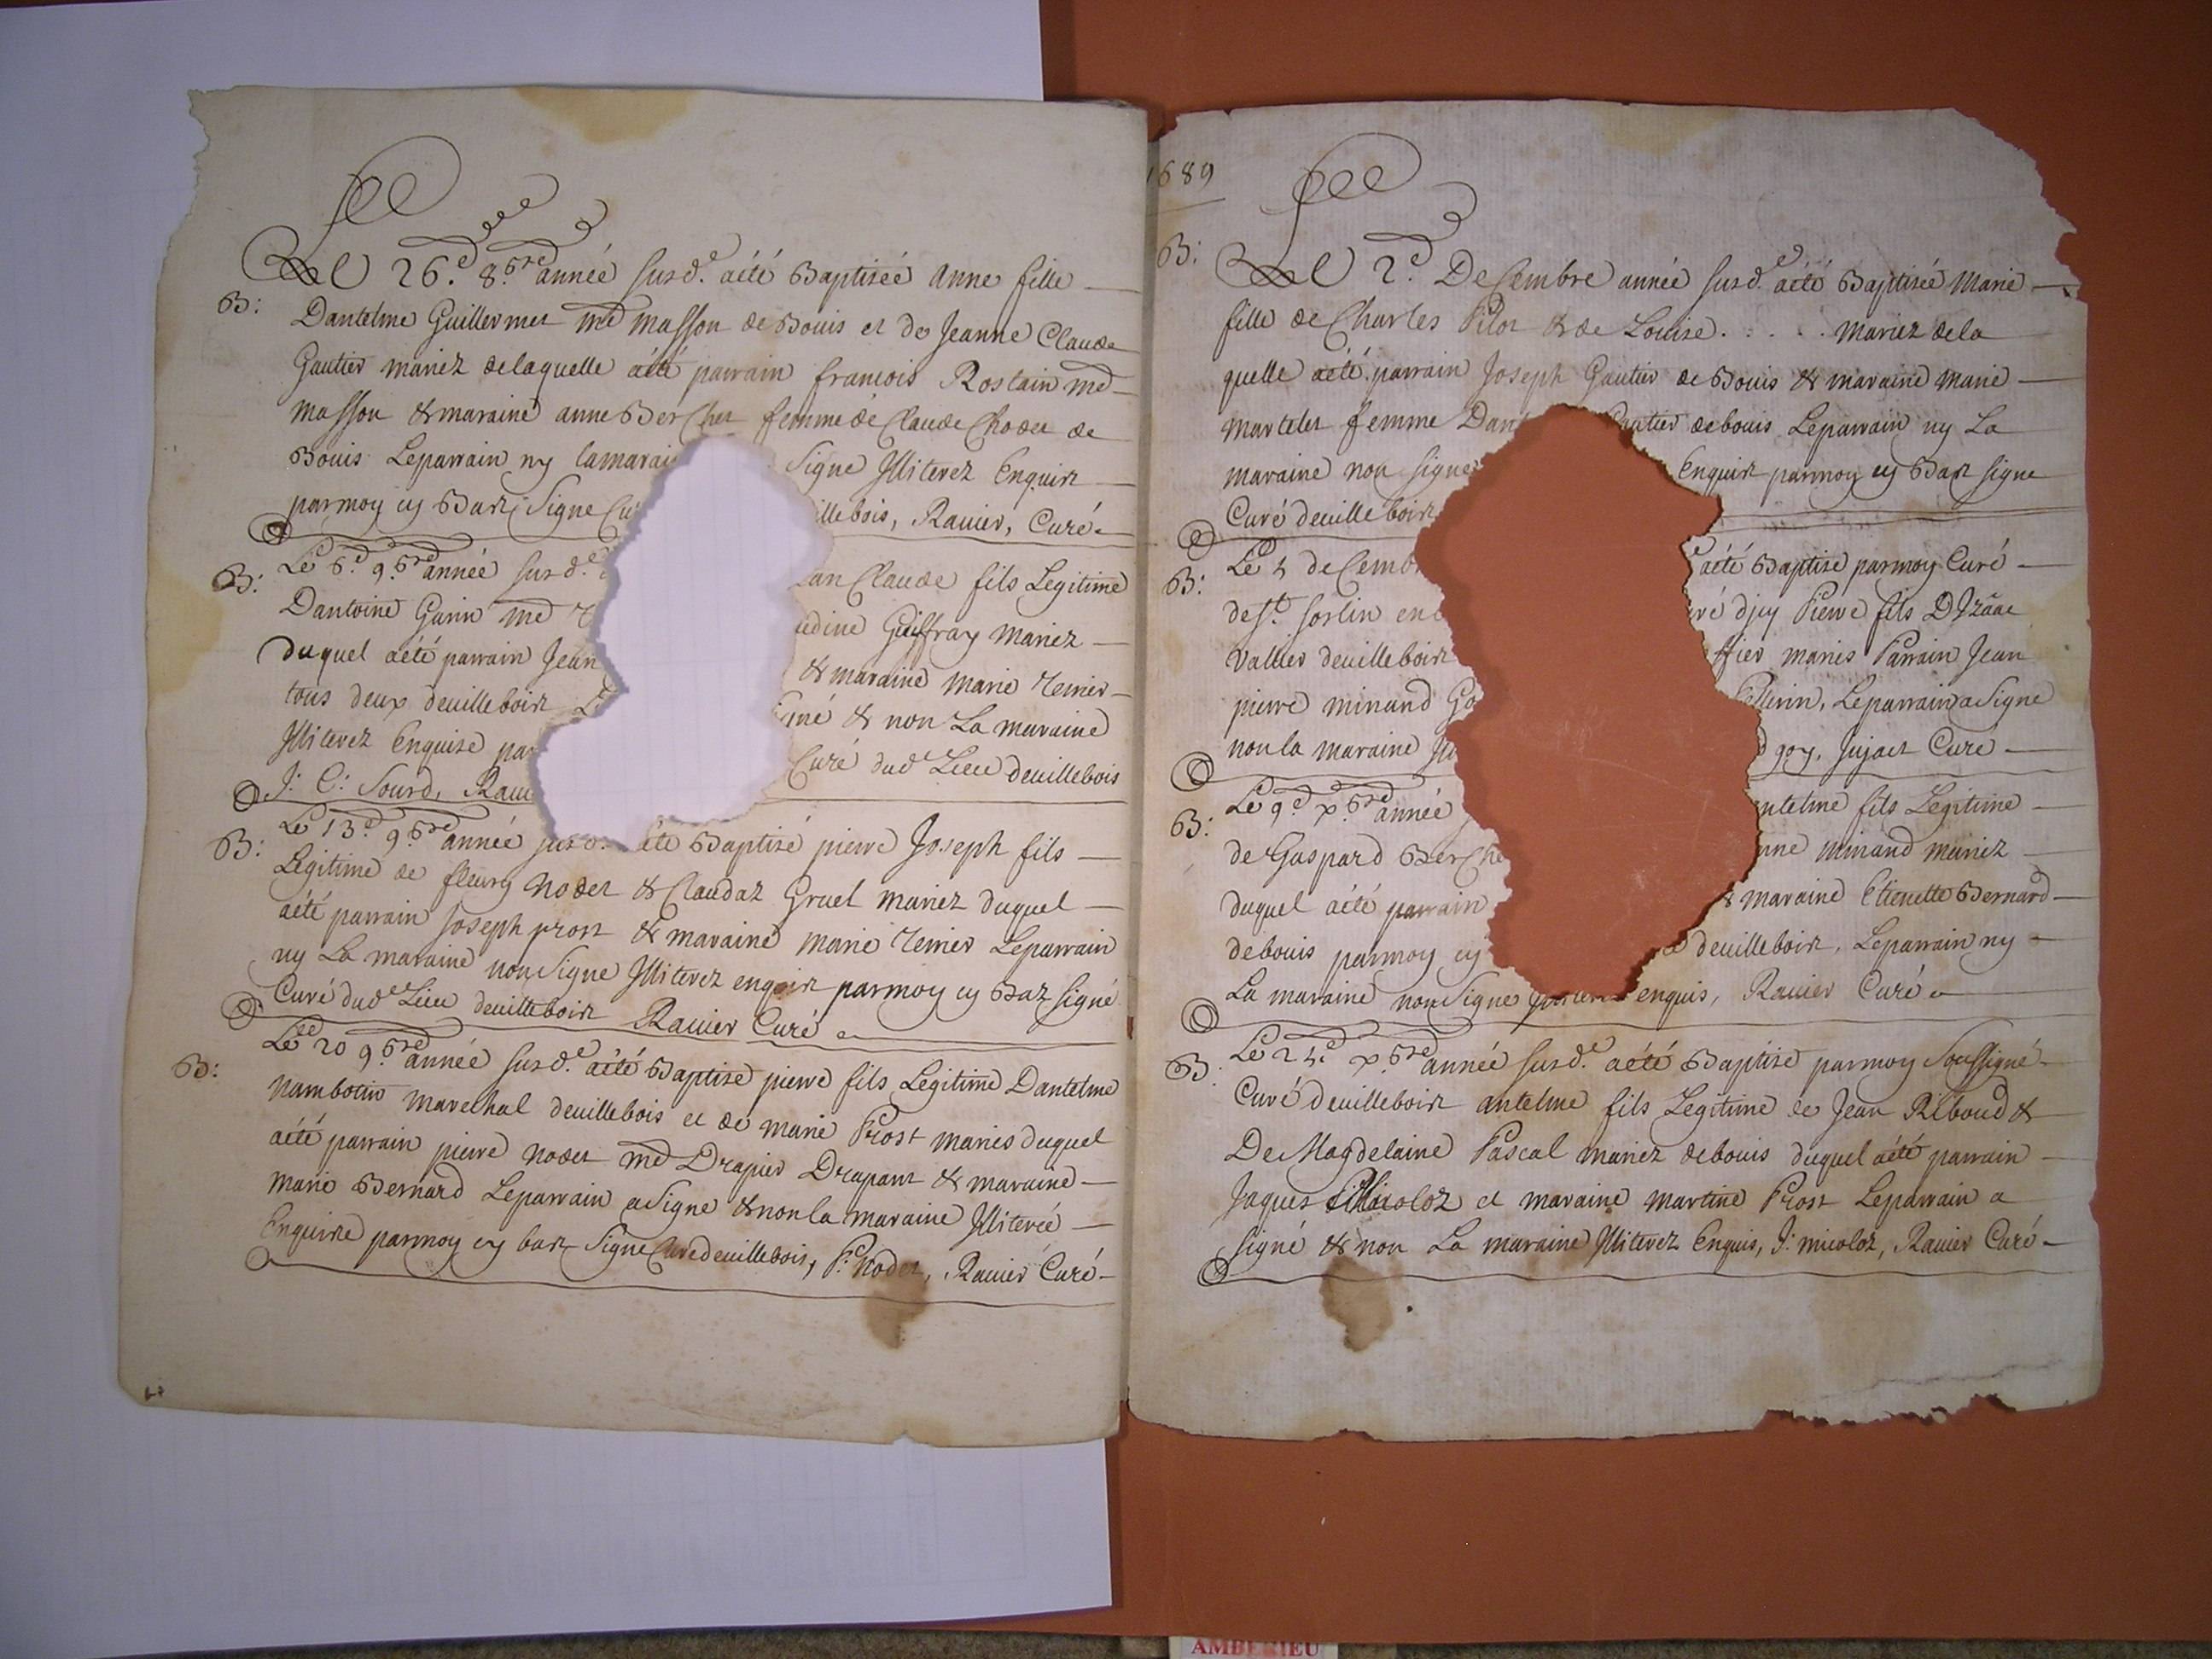 Le 26.e 8.bre année susd.e a été Baptiseé anne fille
B: Dantelme Guillermet m.d masson de Bouis et de Jeanne Claude
Gautier mariez de laquelle a été parrain francois Rostain m.d
masson & maraine anne Berchet femme de Claude Chodet de
Bouis Le parrain ny la marai signe Illiterez Enquirz
par moy cy Bas Signe Cu illebois, Rauier, Curé
B: Le 6.e 9.bre année susd.e an Claude fils Legitime
Dantoine Garin m.d udine Guiffray mariez
duquel a été parrain Jean & maraine marie Teinier
tous deux deuilleboir né & non La maraine
Illiterez Enquise par Curé dud Lieu deuillebois
J: C: Sourd, Raui
B: Le 13.e 9.bre année susd. été Baptisé pierre Joseph fils
Legitime de fleury Nodet & Claudaz Gruel mariez duquel
a été parrain Joseph prost & maraine marie Teinier Le parrain
ny La maraine non Signe Illiterez enquir par moy cy Baz signé
Curé dud Lieu deuilleboir Rauier Curé
B: Le 20 9.bre année susd.e a été Baptise pierre fils Legitime Dantelme
Nambotin marechal deuillebois et de marie Prost mariés duquel
a été parrain pierre Nodet m.d Drapier Drapant & maraine
marie Bernard Le parrain a Signe & non la maraine Illitereé
Enquire par moy cy bas Signe Curé deuillebois, P. Nodet, Rauier Curé
1689
B: Le 2.e Decembre année susd.e a été Baptiseé Marie
fille de Charles Pilot & de Louise. . . . . mariez de la
quelle a été parrain Joseph Gautier de Bouis & maraine Marie
martelet femme Dant Gautier de bouis Le parrain ny La
maraine non signe Enquir par moy cy Bas signe
Curé deuilleboir
B: Le 4 decemb a été Baptise par moy Curé
de S.t Sorlin en vé djcy Pierre fils D Izaac
Vallier deuilleboir ffier mariés Parrain Jean
pierre minand Go ellerin, Le parrain a Signe
non la maraine Jll goy, Jujaet Curé
B: Le 9.e x.bre année ntelme fils Legitime
de Gaspard Berche nne minand mariez
duquel a été parrain & maraine Etienette Bernard
de bouis par moy cy deuilleboir, Le parrain ny
La maraine non Signe enquis, Rauier Curé
B: Le 24.e x.bre année susd.e a été Baptisé par moy Soussigné
Curé deuilleboir antelme fils Legitime de Jean Riboud &
De Magdelaine Pascal mariez de bouis duquel a été parrain
Jaques Micoloz et maraine martine Prost Le parrain a
signé & non La maraine Illiterez Enquis, J: micoloz, Rauier Curé
AMBERIEU